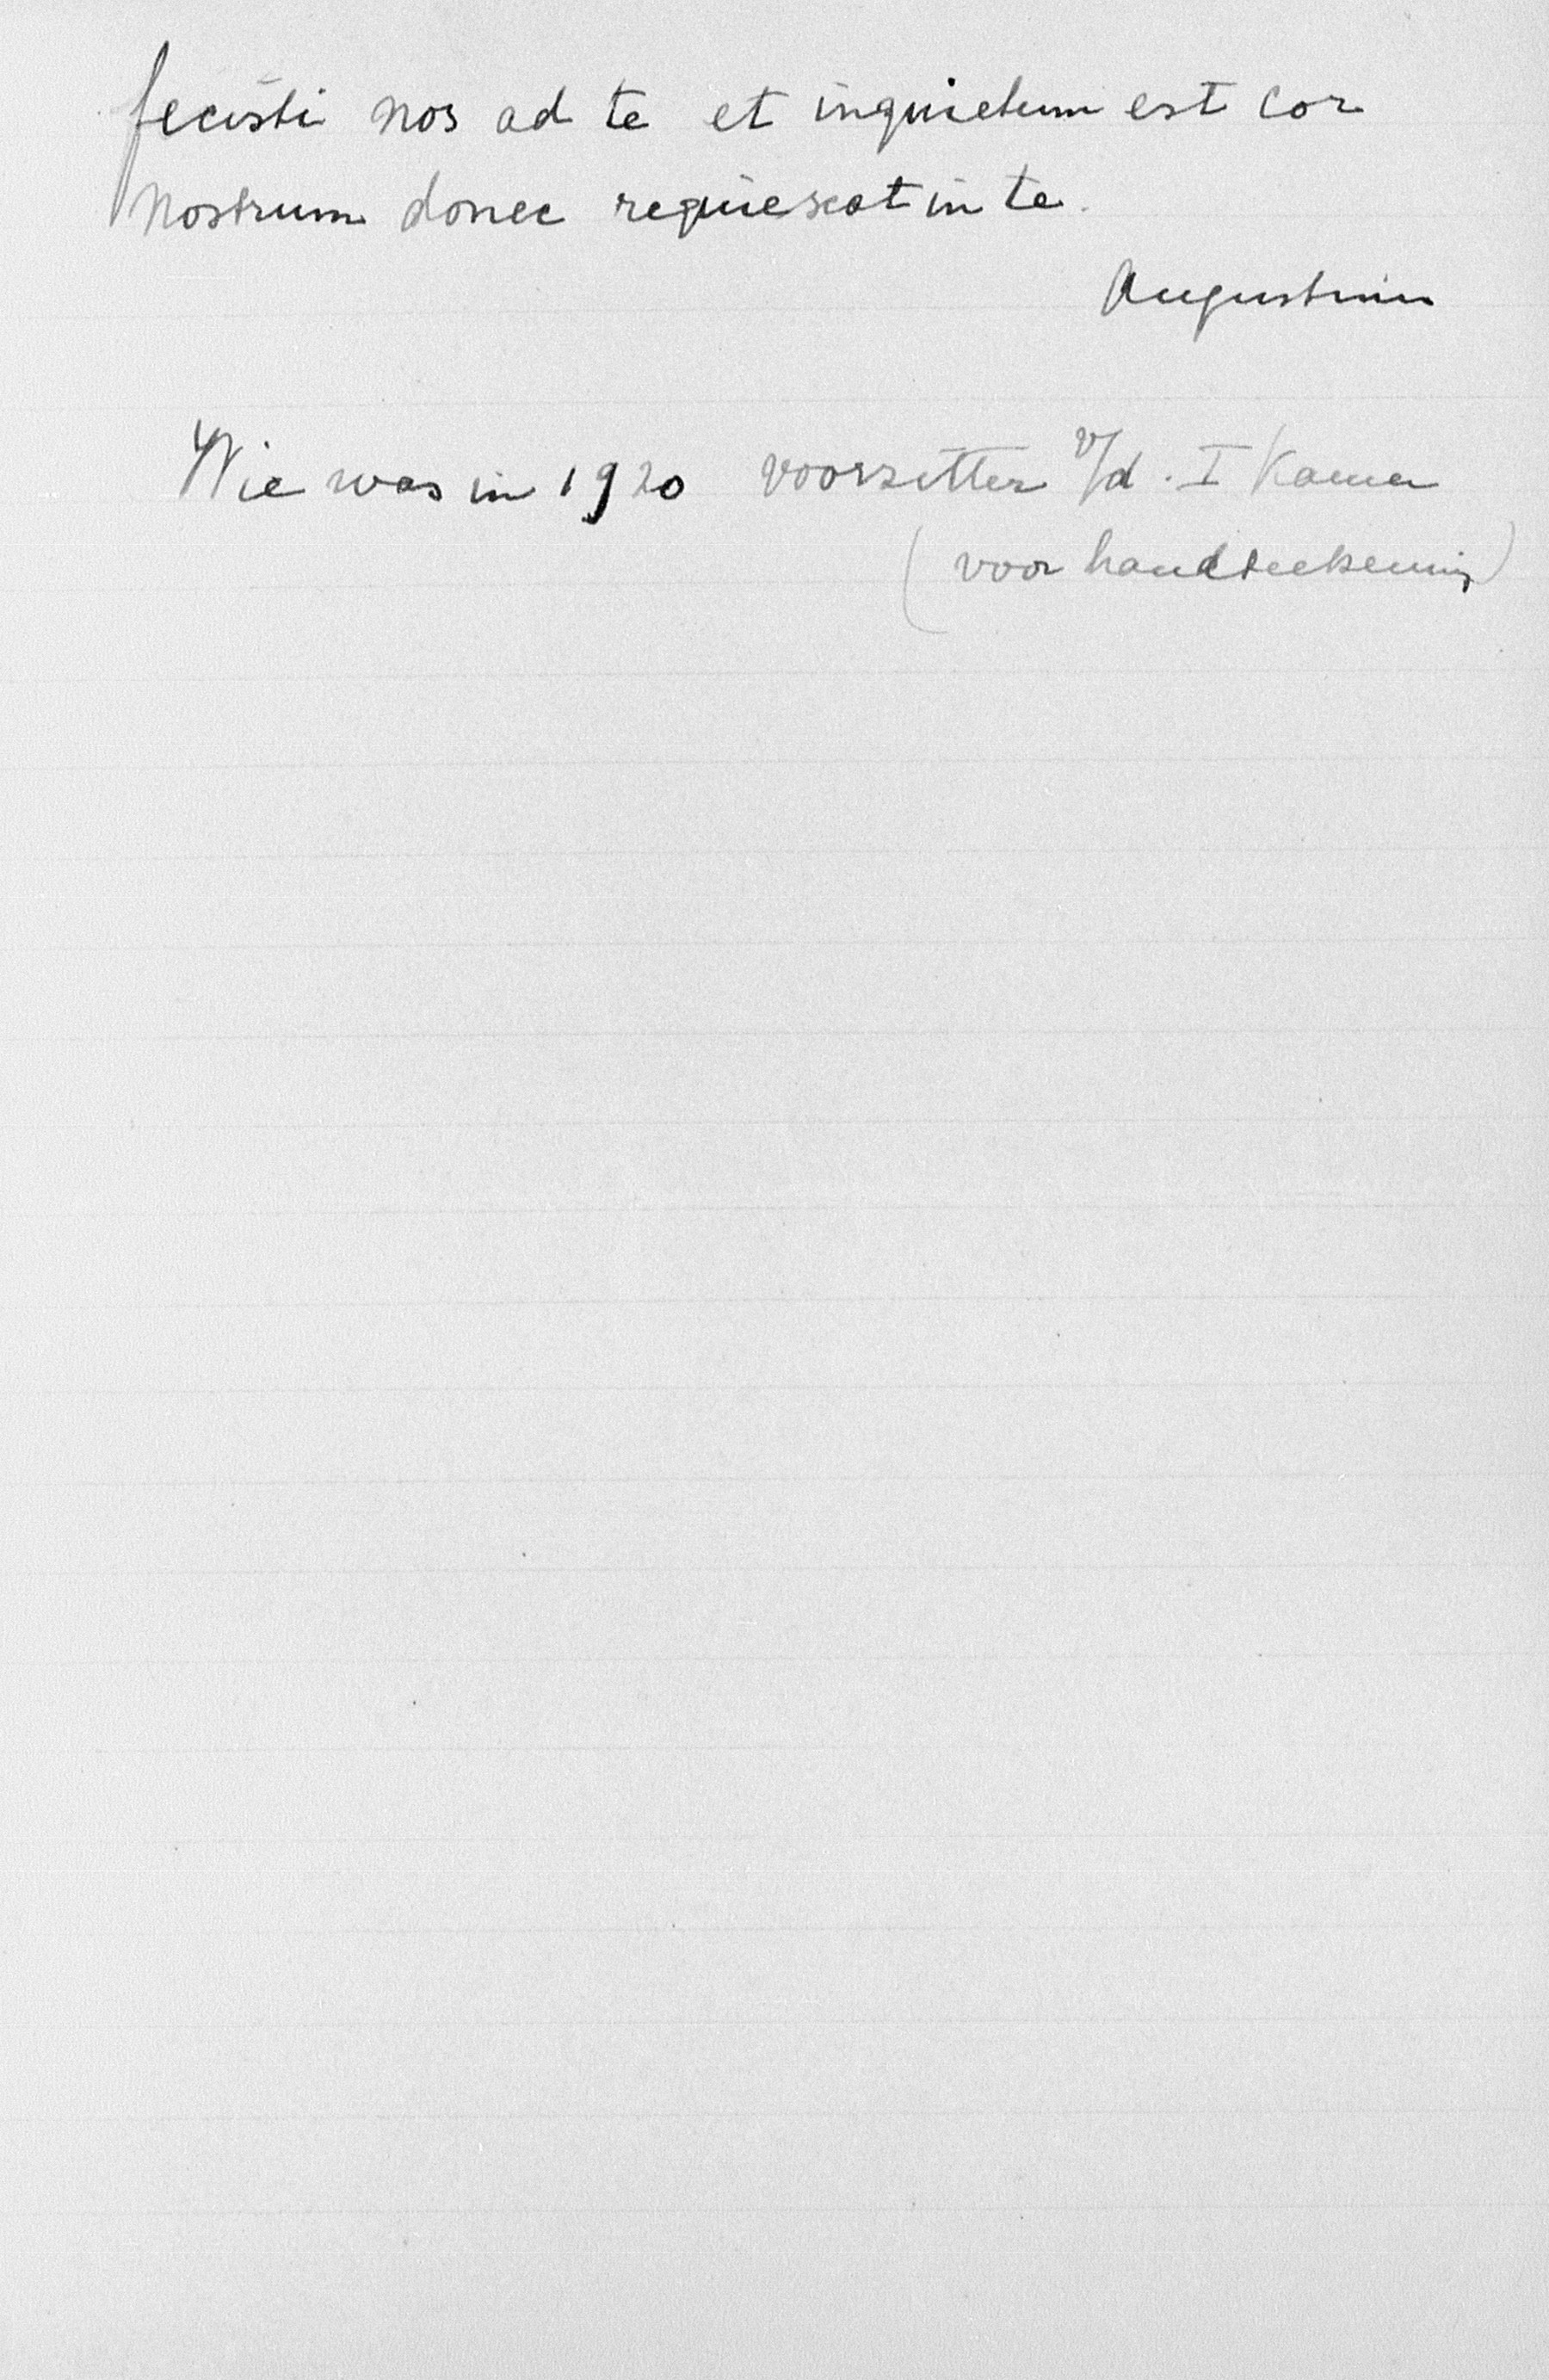 fecisti nos ad te et inquietum est cor
nostrum donec requiescat in te.
Augustinus
Wie was in 1920 voorzitter v/d. I Kamer
(voor handteekening)